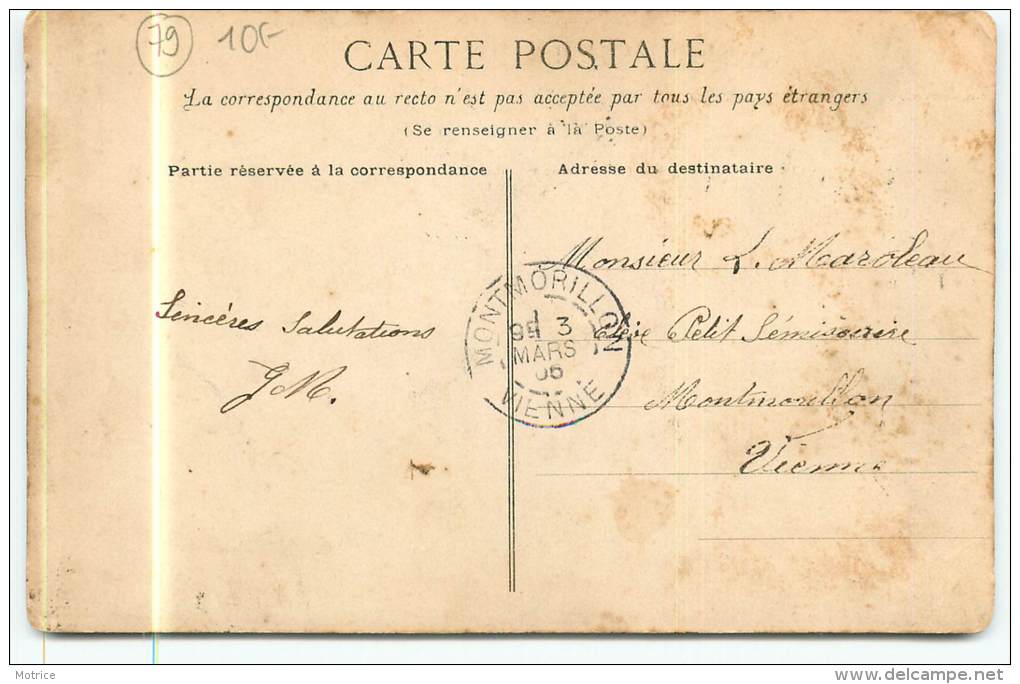 79 10€
CARTE POSTALE
La correspondance au recto n'est pas acceptée par tous les pays étrangers
(Se renseigner à la Poste)
Partie réservée à la correspondance
Adresse du destinataire
Sincères Salutations
J M.
Monsieur L. Maroleau
Elève Petit Séminaire
Montmorillon
Vienne
MONTMORILLON
3
MARS
06
VIENNE
Motrice
www.delcampe.net